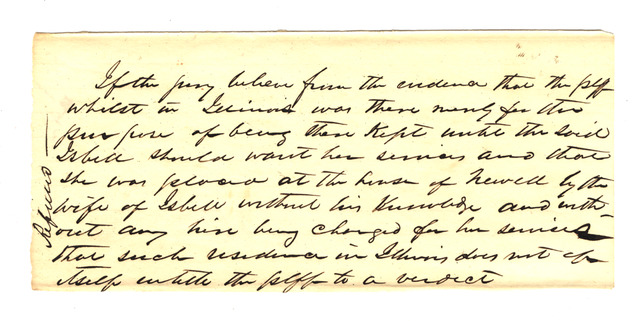 If the jury believe from the evidence that the plff
whilst in Illinois was there merely for the
purpose of being there Kept until the said
Isbell should want her services and that
she was placed at the house of Newell by the
wife of Isbell without his Knowledge and with
out any hire being charged for her services
that such residence in Illinois does not of
itself entitle the plff to a verdict
Refused